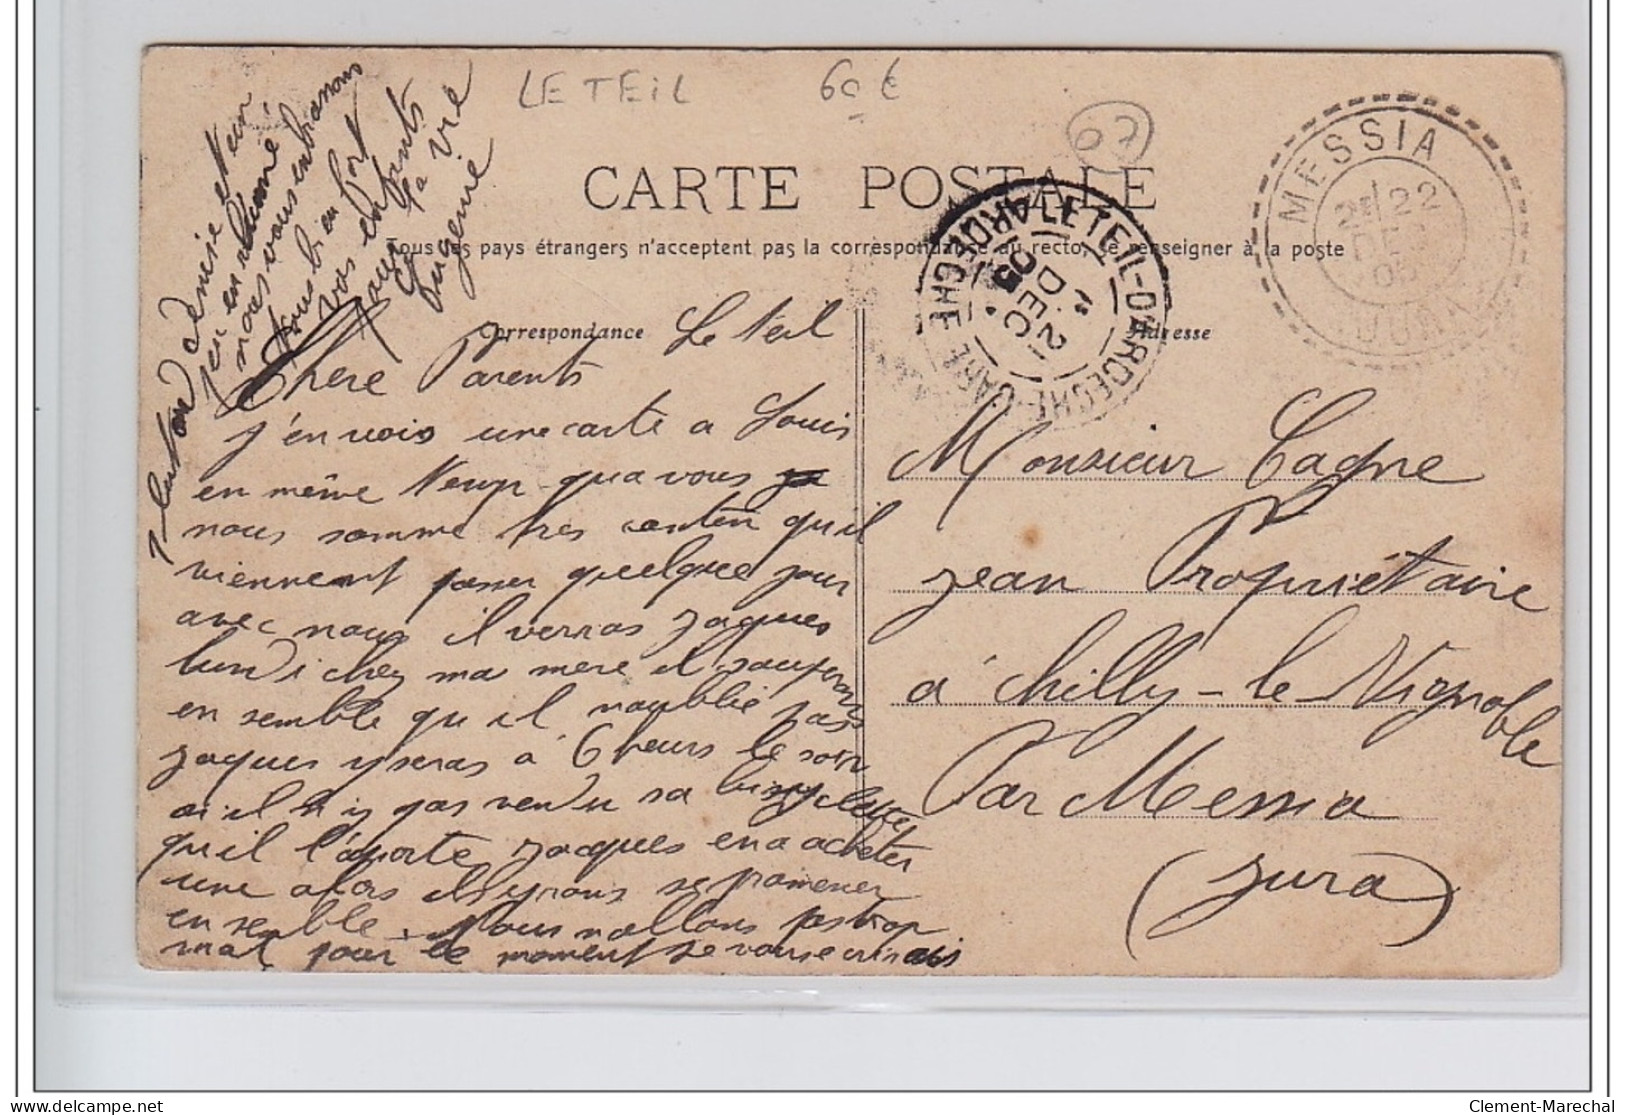 LE TEIL 60 €
07
CARTE POSTALE
Tous les pays étrangers n'acceptent pas la correspondance au recto, se renseigner à la poste
Correspondance
Adresse
MESSIA
22
DEC
05
JURA
LE TEIL-D'ARDECHE-GARE
ARDECHE
21
DEC
05
Le Teil
Chere Parents
J'envois une carte a Louis
en même temp qua vous
nous somme tres conten qu'il
viennent passer quelque jour
avec nous il verras jaques
lundi chez ma mere il souperons
en semble qu il noublie pas
jaques y seras à 6 heurs le soir
si il n'y pas vendu sa bisyclette
qu il l'aporte, jaques en a acheter
une alors ils yrons se promener
en semble. Nous nallons pas trop
mal pour le moment je vous ecrirais
nous vous enbrasons
tous bien fort
vos enfants
pour la vie
Eugenie
Monsieur Cagne
jean Propriétaire
à Chilly-le-Vignoble
Par Messia
(jura)
Clement-Marechal